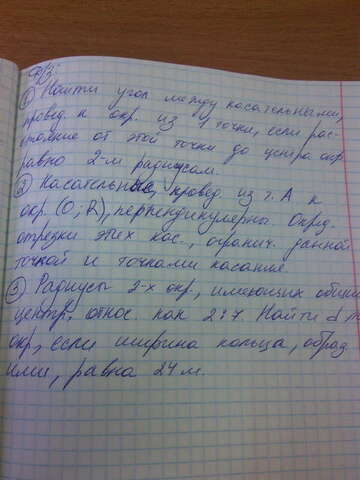 Д/З:
① Найти угол между касательными,
провед. к окр. из 1 точки, если рас-
стояние от этой точки до центра окр.
равно 2-м радиусам.
② Касательные провед. из т. А к
окр. (O; R), перпендикулярны. Опред.
отрезки этих кас., огранич. данной
точкой и точками касания.
③ Радиусы 2-х окр., имеющих общий
центр, относ. как 2:7. Найти d
окр., если ширина кольца, образ.
ими, равна 24 м.